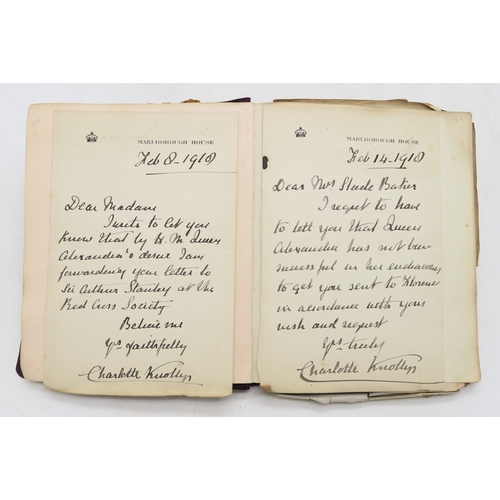 MARLBOROUGH HOUSE
Feb 8 - 1918
Dear Madam
I write to let you
know that by H. M. Queen
Alexandra's desire I am
forwarding your letter to
Sir Arthur Stanley at the
Red Cross Society
Believe me
Yrs faithfully
Charlotte Knollys
MARLBOROUGH HOUSE
Feb 14 - 1918
Dear Mrs Slade Baker
I regret to have
to tell you that Queen
Alexandra has not been
successful in her endeavours
to get you sent to Florence
in accordance with your
wish and request
Yrs truly
Charlotte Knollys